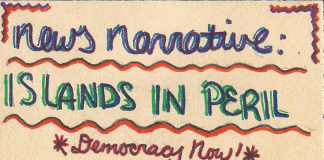 News Narrative:
ISLANDS IN PERIL
*Democracy Now!*